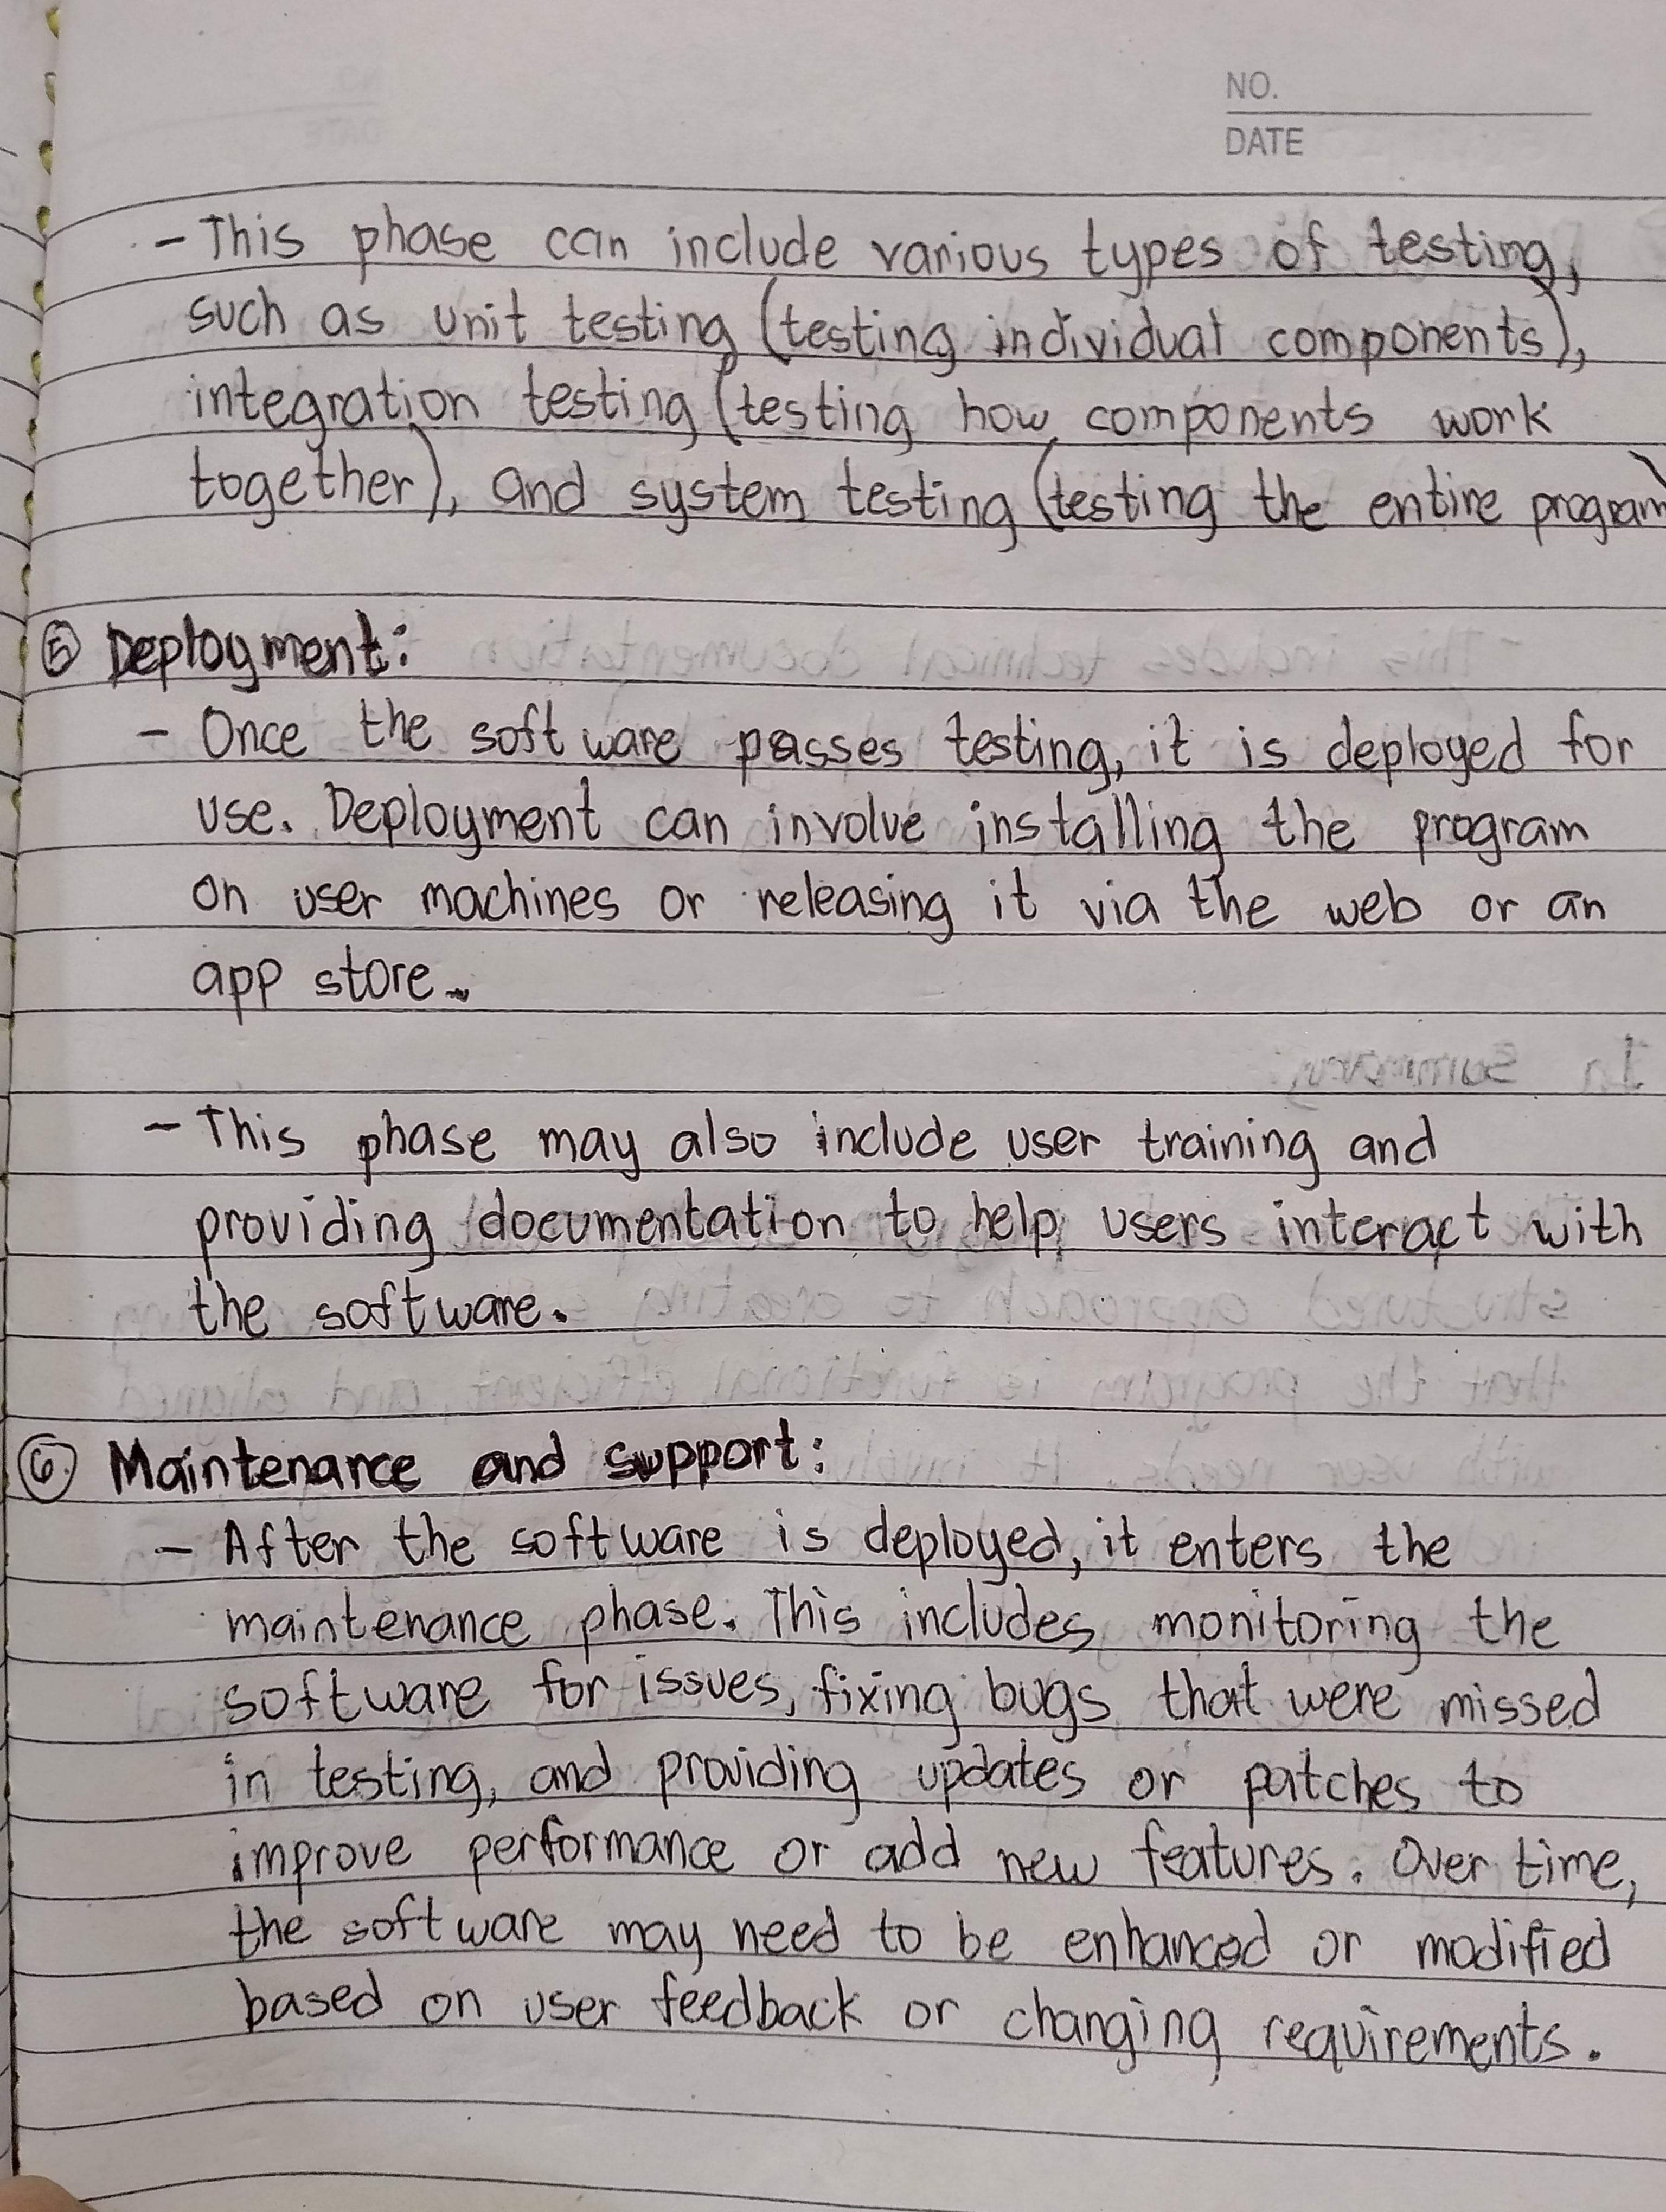 NO.
DATE
- This phase can include various types of testing,
such as unit testing (testing individual components),
integration testing (testing how components work
together), and system testing (testing the entire program)
⑤ Deployment:
- Once the software passes testing, it is deployed for
use. Deployment can involve installing the program
on user machines or releasing it via the web or an
app store.
- This phase may also include user training and
providing documentation to help users interact with
the software.
⑥ Maintenance and support:
- After the software is deployed, it enters the
maintenance phase. This includes monitoring the
software for issues, fixing bugs that were missed
in testing, and providing updates or patches to
improve performance or add new features. Over time,
the software may need to be enhanced or modified
based on user feedback or changing requirements.